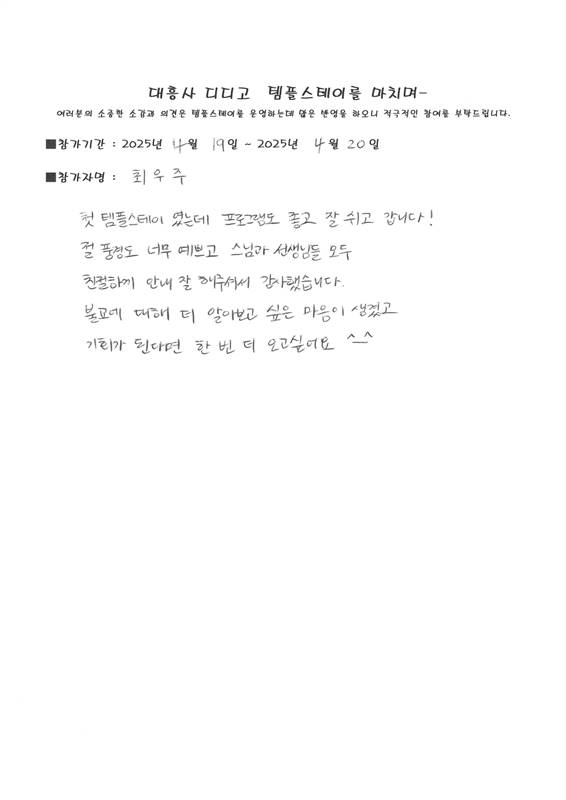 대흥사 디디고 템플스테이를 마치며-
여러분의 소중한 소감과 의견은 템플스테이를 운영하는데 많은 반영을 하오니 적극적인 참여를 부탁드립니다.
■참가기간 : 2025년 4월 19일 ~ 2025년 4월 20일
■참가자명 : 최우주
첫 템플스테이 였는데 프로그램도 좋고 잘 쉬고 갑니다!
절 풍경도 너무 예쁘고 스님과 선생님들 모두
친절하게 안내 잘 해주셔서 감사했습니다.
불교에 대해 더 알아보고 싶은 마음이 생겼고
기회가 된다면 한 번 더 오고싶어요 ^_^